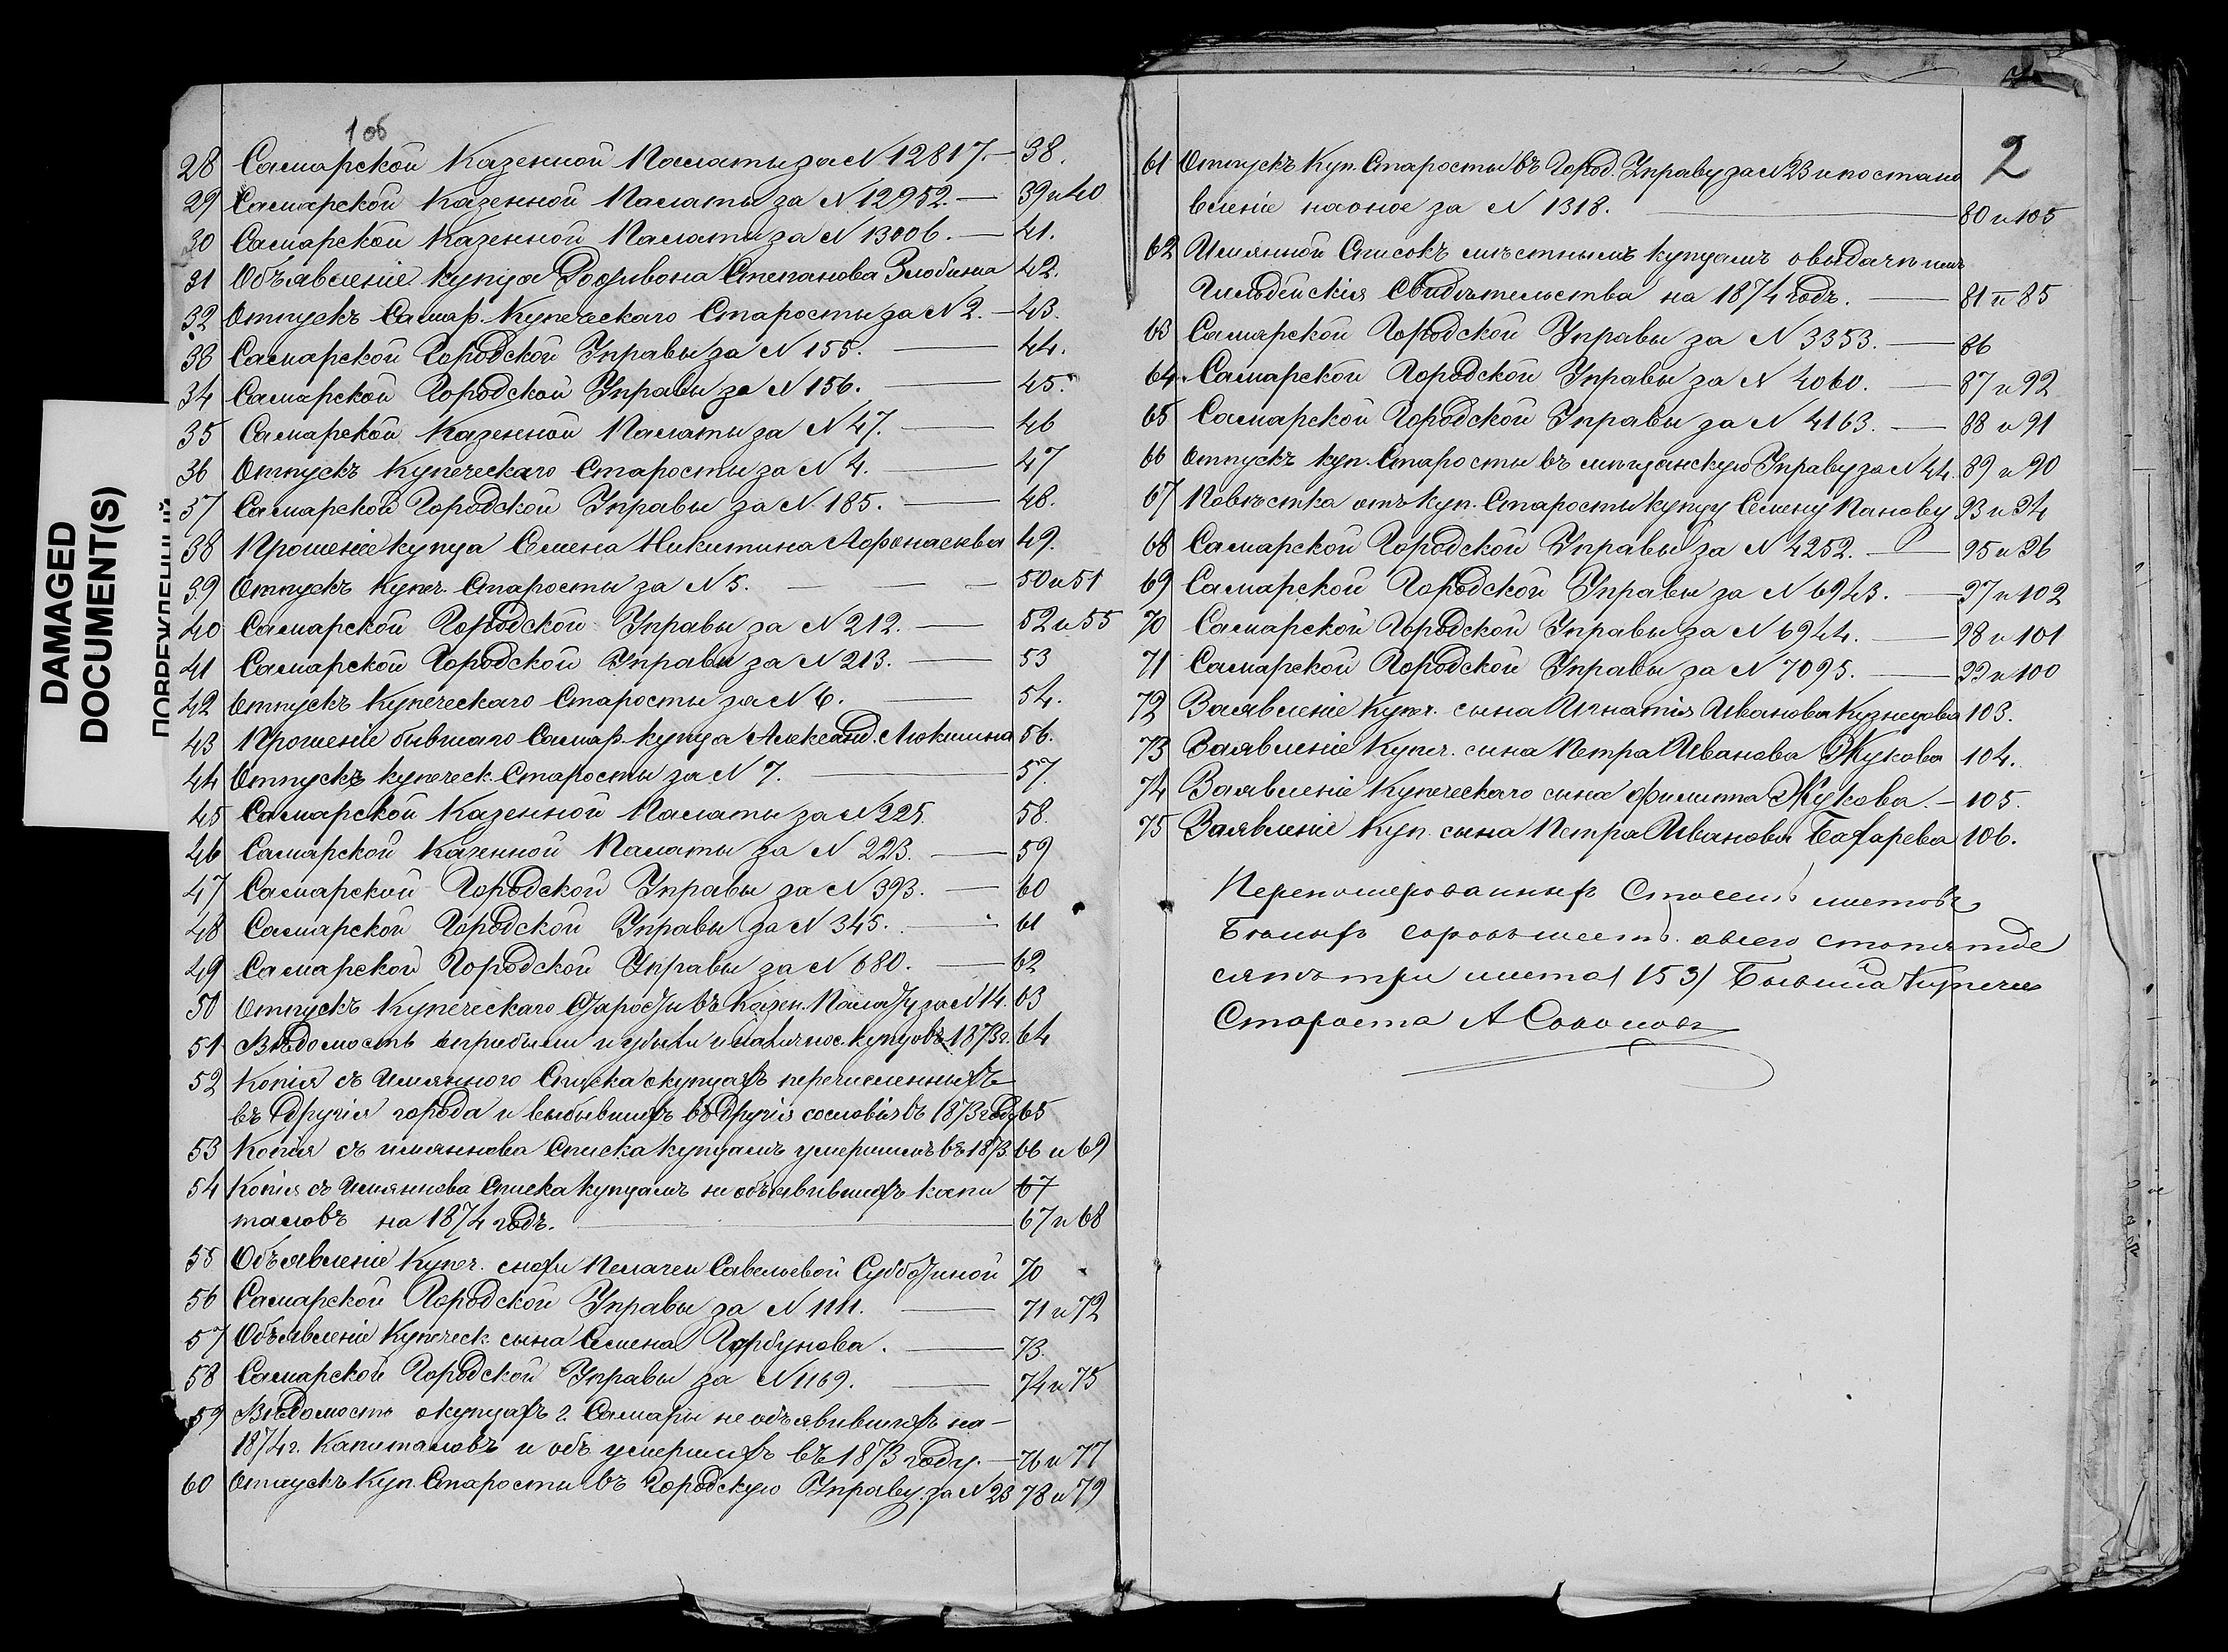 DAMAGED
DOCUMENT(S)
1 об
28 Самарской Казенной Палаты за N 12817. — 38.
29 Самарской Казенной Палаты за N 12952. — 39 и 40
30 Самарской Казенной Палаты за N 13006. — 41.
31 Объявленіе купца Родивона Степанова Злобина 42.
32 Отпускъ Самар. Купеческаго Старосты за N 2. — 43.
33 Самарской Городской Управы за N 155. — 44.
34 Самарской Городской Управы за N 156. — 45.
35 Самарской Казенной Палаты за N 47. — 46
36 Отпускъ Купеческаго Старосты за N 4. — 47
37 Самарской Городской Управы за N 185. — 48.
38 Прошеніе купца Семена Никитина 49.
39 Отпускъ Купеч. Старосты за N 5. — 50 и 51
40 Самарской Городской Управы за N 212. — 52 и 55
41 Самарской Городской Управы за N 213. — 53
42 Отпускъ Купеческаго Старосты за N 6. — 54.
43 Прошеніе бывшаго Самар. купца Александ. Люкшина 56.
44 Отпускъ купеческ. Старосты за N 7. — 57.
45 Самарской Казенной Палаты за N 225. 58.
46 Самарской Казенной Палаты за N 223. — 59
47 Самарской Городской Управы за N 393. — 60
48 Самарской Городской Управы за N 345. — 61
49 Самарской Городской Управы за N 680. — 62
50 Отпускъ Купеческаго Старосты въ Казен. Палату за N 14. 63
51 Вѣдомость о прибыли и убыли и наличнос. купцовъ 1873 г. 64
52 Копія съ Имяннаго Списка о купцахъ перечисленныхъ
въ другія города и выбывшихъ въ другія сословія въ 1873 году 65
53 Копія съ имяннова Списка купцамъ умершимъ въ 1873 66 и 69
54 Копія съ Имяннова Списка купцамъ не объявившихъ капи 67
таловъ на 1874 годъ. — 67 и 68
55 Объявленіе Купеч. снохи Пелагеи Савельевой Субботиной 70
56 Самарской Городской Управы за N 1111. — 71 и 72
57 Объявленіе Купеческ. сына Семена Горбунова. — 73.
58 Самарской Городской Управы за N 1169. — 74 и 75
59 Вѣдомость о купцахъ г. Самары не объявившихъ на —
1874 г. Капиталовъ и объ умершихъ въ 1873 году. — 76 и 77
60 Отпускъ Куп. Старосты въ Городскую Управу за N 23 78 и 79
2
61 Отпускъ Куп. Старосты въ Город. Управу за N 23 и постано
вленіе на оное за N 1318. — 80 и 105
62 Имянной Списокъ мѣстнымъ купцамъ о выдачи имъ
Гильдейскія Свидѣтельства на 1874 годъ. — 81 и 85
63 Самарской Городской Управы за N 3353. — 86
64 Самарской Городской Управы за N 4060. — 87 и 92
65 Самарской Городской Управы за N 4163. — 88 и 91
66 Отпускъ куп. Старосты въ мещанскую Управу за N 44. 89 и 90
67 Повѣстка отъ Куп. Старосты купцу Семену Панову 93 и 94
68 Самарской Городской Управы за N 4252. — 95 и 96
69 Самарской Городской Управы за N 6943. — 97 и 102
70 Самарской Городской Управы за N 6944. — 98 и 101
71 Самарской Городской Управы за N 7095. — 99 и 100
72 Заявленіе Купеч. сына Игнатія Иванова Кузнецова 103.
73 Заявленіе Купеч. сына Петра Иванова Жукова 104.
74 Заявленіе Купеческаго сына Филиппа Жукова. — 105.
75 Заявленіе Куп. сына Петра Иванова Бахарева 106.
Переномерованныхъ Стосемь листовъ
Бѣлыхъ сорокъшесть. авсего стопятьде
сятътри листа (153) Бывшій Купечес
Староста А Соколовъ